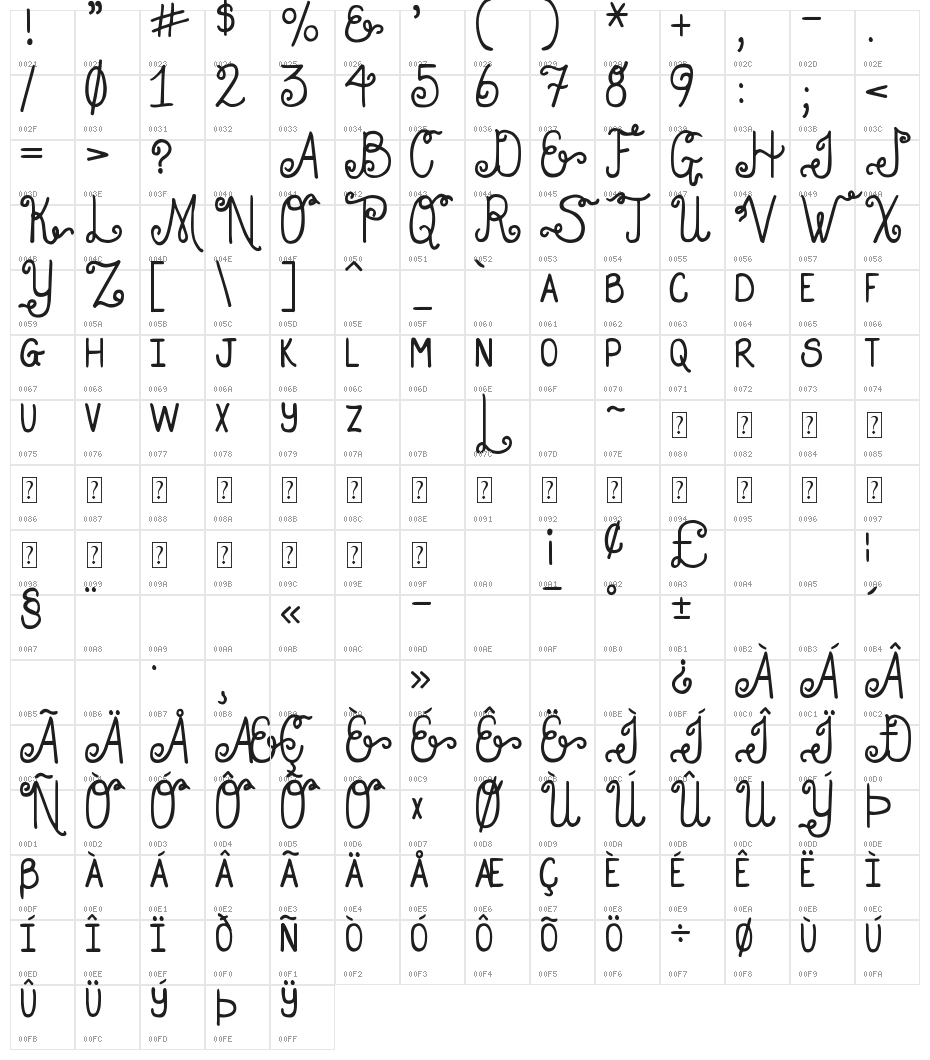 ! " # $ % & ' ( ) * + , - .
0021 0022 0023 0024 0025 0026 0027 0028 0029 002A 002B 002C 002D 002E
/ 0 1 2 3 4 5 6 7 8 9 : ; <
002F 0030 0031 0032 0033 0034 0035 0036 0037 0038 0039 003A 003B 003C
= > ? A B C D E F G H I J
003D 003E 003F 0040 0041 0042 0043 0044 0045 0046 0047 0048 0049 004A
K L M N O P Q R S T U V W X
004B 004C 004D 004E 004F 0050 0051 0052 0053 0054 0055 0056 0057 0058
Y Z [ \ ] ^ _ ` A B C D E F
0059 005A 005B 005C 005D 005E 005F 0060 0061 0062 0063 0064 0065 0066
G H I J K L M N O P Q R S T
0067 0068 0069 006A 006B 006C 006D 006E 006F 0070 0071 0072 0073 0074
U V W X Y Z L ~ ? ? ? ?
0075 0076 0077 0078 0079 007A 007B 007C 007D 007E 0080 0082 0084 0085
? ? ? ? ? ? ?
0086 0087 0088 008A 008B 008C 008E 0091 0092 0093 0094 0095 0096 0097
? ? ? ? ? ? ? ¡ ¢ £ ¦
0098 0099 009A 009B 009C 009E 009F 00A0 00A1 00A2 00A3 00A4 00A5 00A6
§ ¨ « - ¯ ° ± ´
00A7 00A8 00A9 00AA 00AB 00AC 00AD 00AE 00AF 00B0 00B1 00B2 00B3 00B4
· ¸ » ¿ À Á Â
00B5 00B6 00B7 00B8 00B9 00BA 00BB 00BC 00BD 00BE 00BF 00C0 00C1 00C2
Ã Ä Å Æ Ç È É Ê Ë Ì Í Î Ï Ð
00C3 00C4 00C5 00C6 00C7 00C8 00C9 00CA 00CB 00CC 00CD 00CE 00CF 00D0
Ñ Ò Ó Ô Õ Ö × Ø Ù Ú Û Ü Ý Þ
00D1 00D2 00D3 00D4 00D5 00D6 00D7 00D8 00D9 00DA 00DB 00DC 00DD 00DE
ß À Á Â Ã Ä Å Æ Ç È É Ê Ë Ì
00DF 00E0 00E1 00E2 00E3 00E4 00E5 00E6 00E7 00E8 00E9 00EA 00EB 00EC
Í Î Ï Ò Ñ Ò Ó Ô Õ Ö ÷ Ø Ù Ú
00ED 00EE 00EF 00F0 00F1 00F2 00F3 00F4 00F5 00F6 00F7 00F8 00F9 00FA
Û Ü Ý Þ Ÿ
00FB 00FC 00FD 00FE 00FF